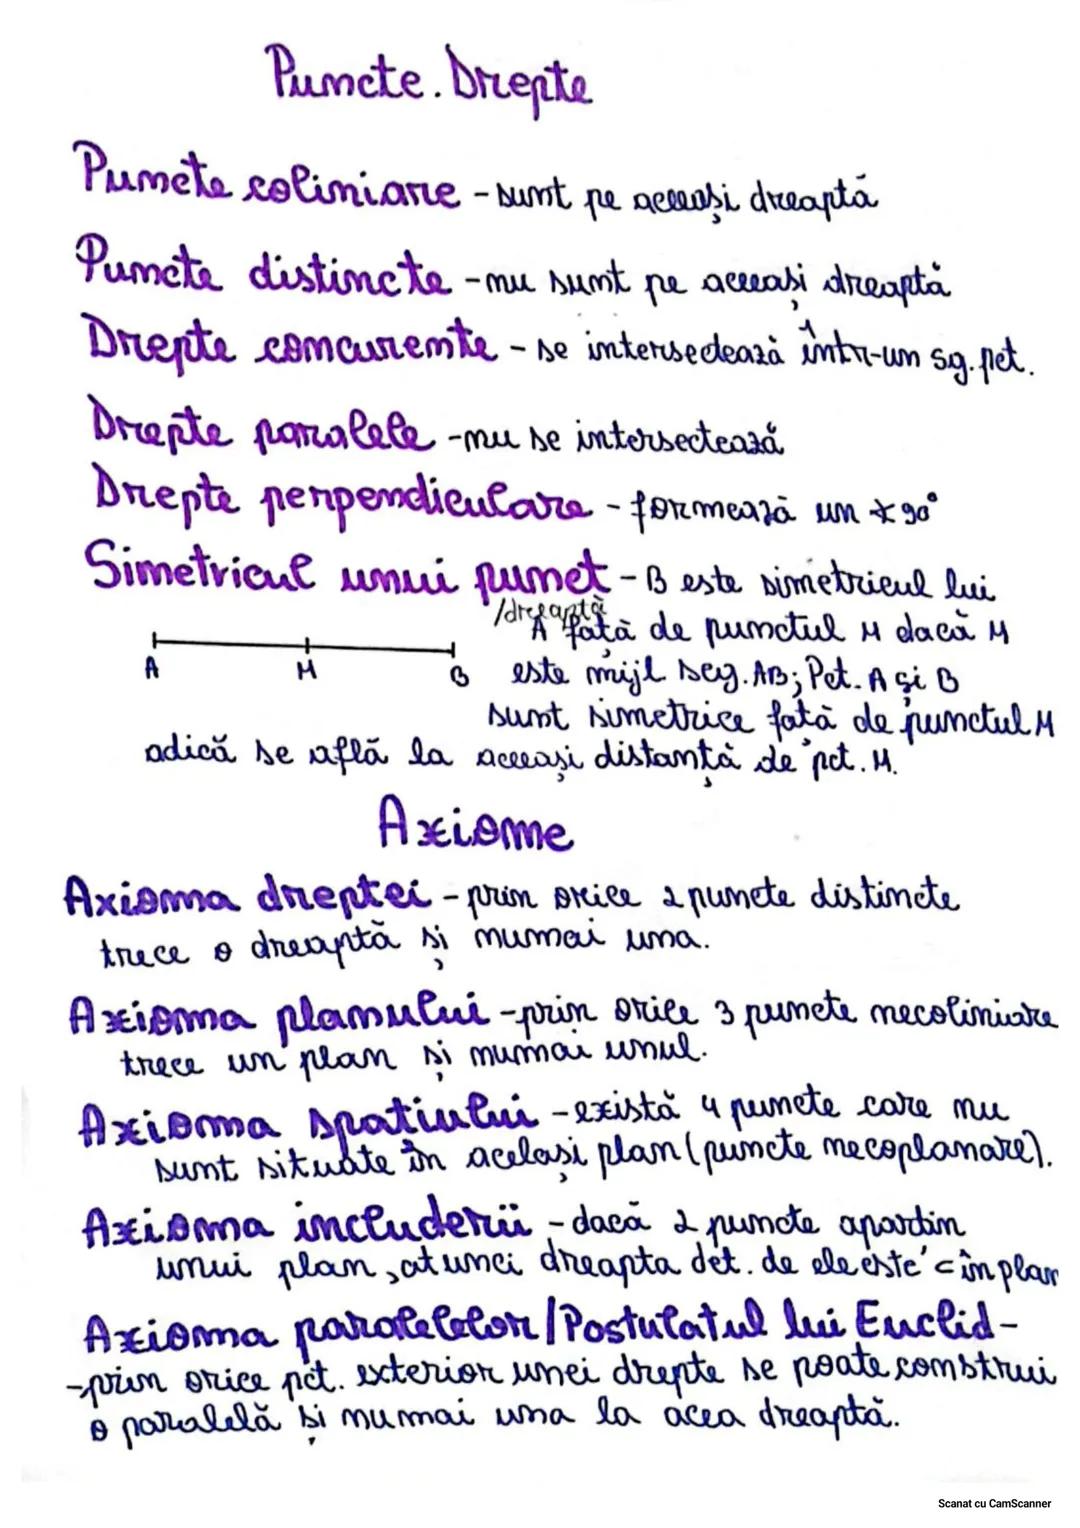 Puncte. Drepte
Puncte coliniare - sunt pe aceeași dreaptă
Puncte distincte - nu sunt pe aceeași dreaptă
Drepte concurente - se intersedează într-un sg. pct.
Drepte paralele - nu se intersectează
Drepte perpendiculare - formează un ∢ 90°
Simetricul unui punct - B este simetricul lui
/dreaptă
A față de punctul M dacă M
A M B este mijl seg. AB; Pct. A și B
sunt simetrice față de punctul M
adică se află la aceeași distanță de pct. M.
Axiome
Axioma dreptei - prin orice 2 puncte distincte
trece o dreaptă și numai una.
Axioma planului - prin orice 3 puncte necoliniare
trece un plan și numai unul.
Axioma spatiului - există 4 puncte care nu
sunt situate în același plan (puncte necoplanare).
Axioma includerii - dacă 2 puncte apartin
unui plan, atunci dreapta det. de ele este ⊂ în plan
Axioma paralelelor / Postulatul lui Euclid -
- prin orice pct. exterior unei drepte se poate construi
o paralelă și numai una la acea dreaptă.
Scanat cu CamScanner